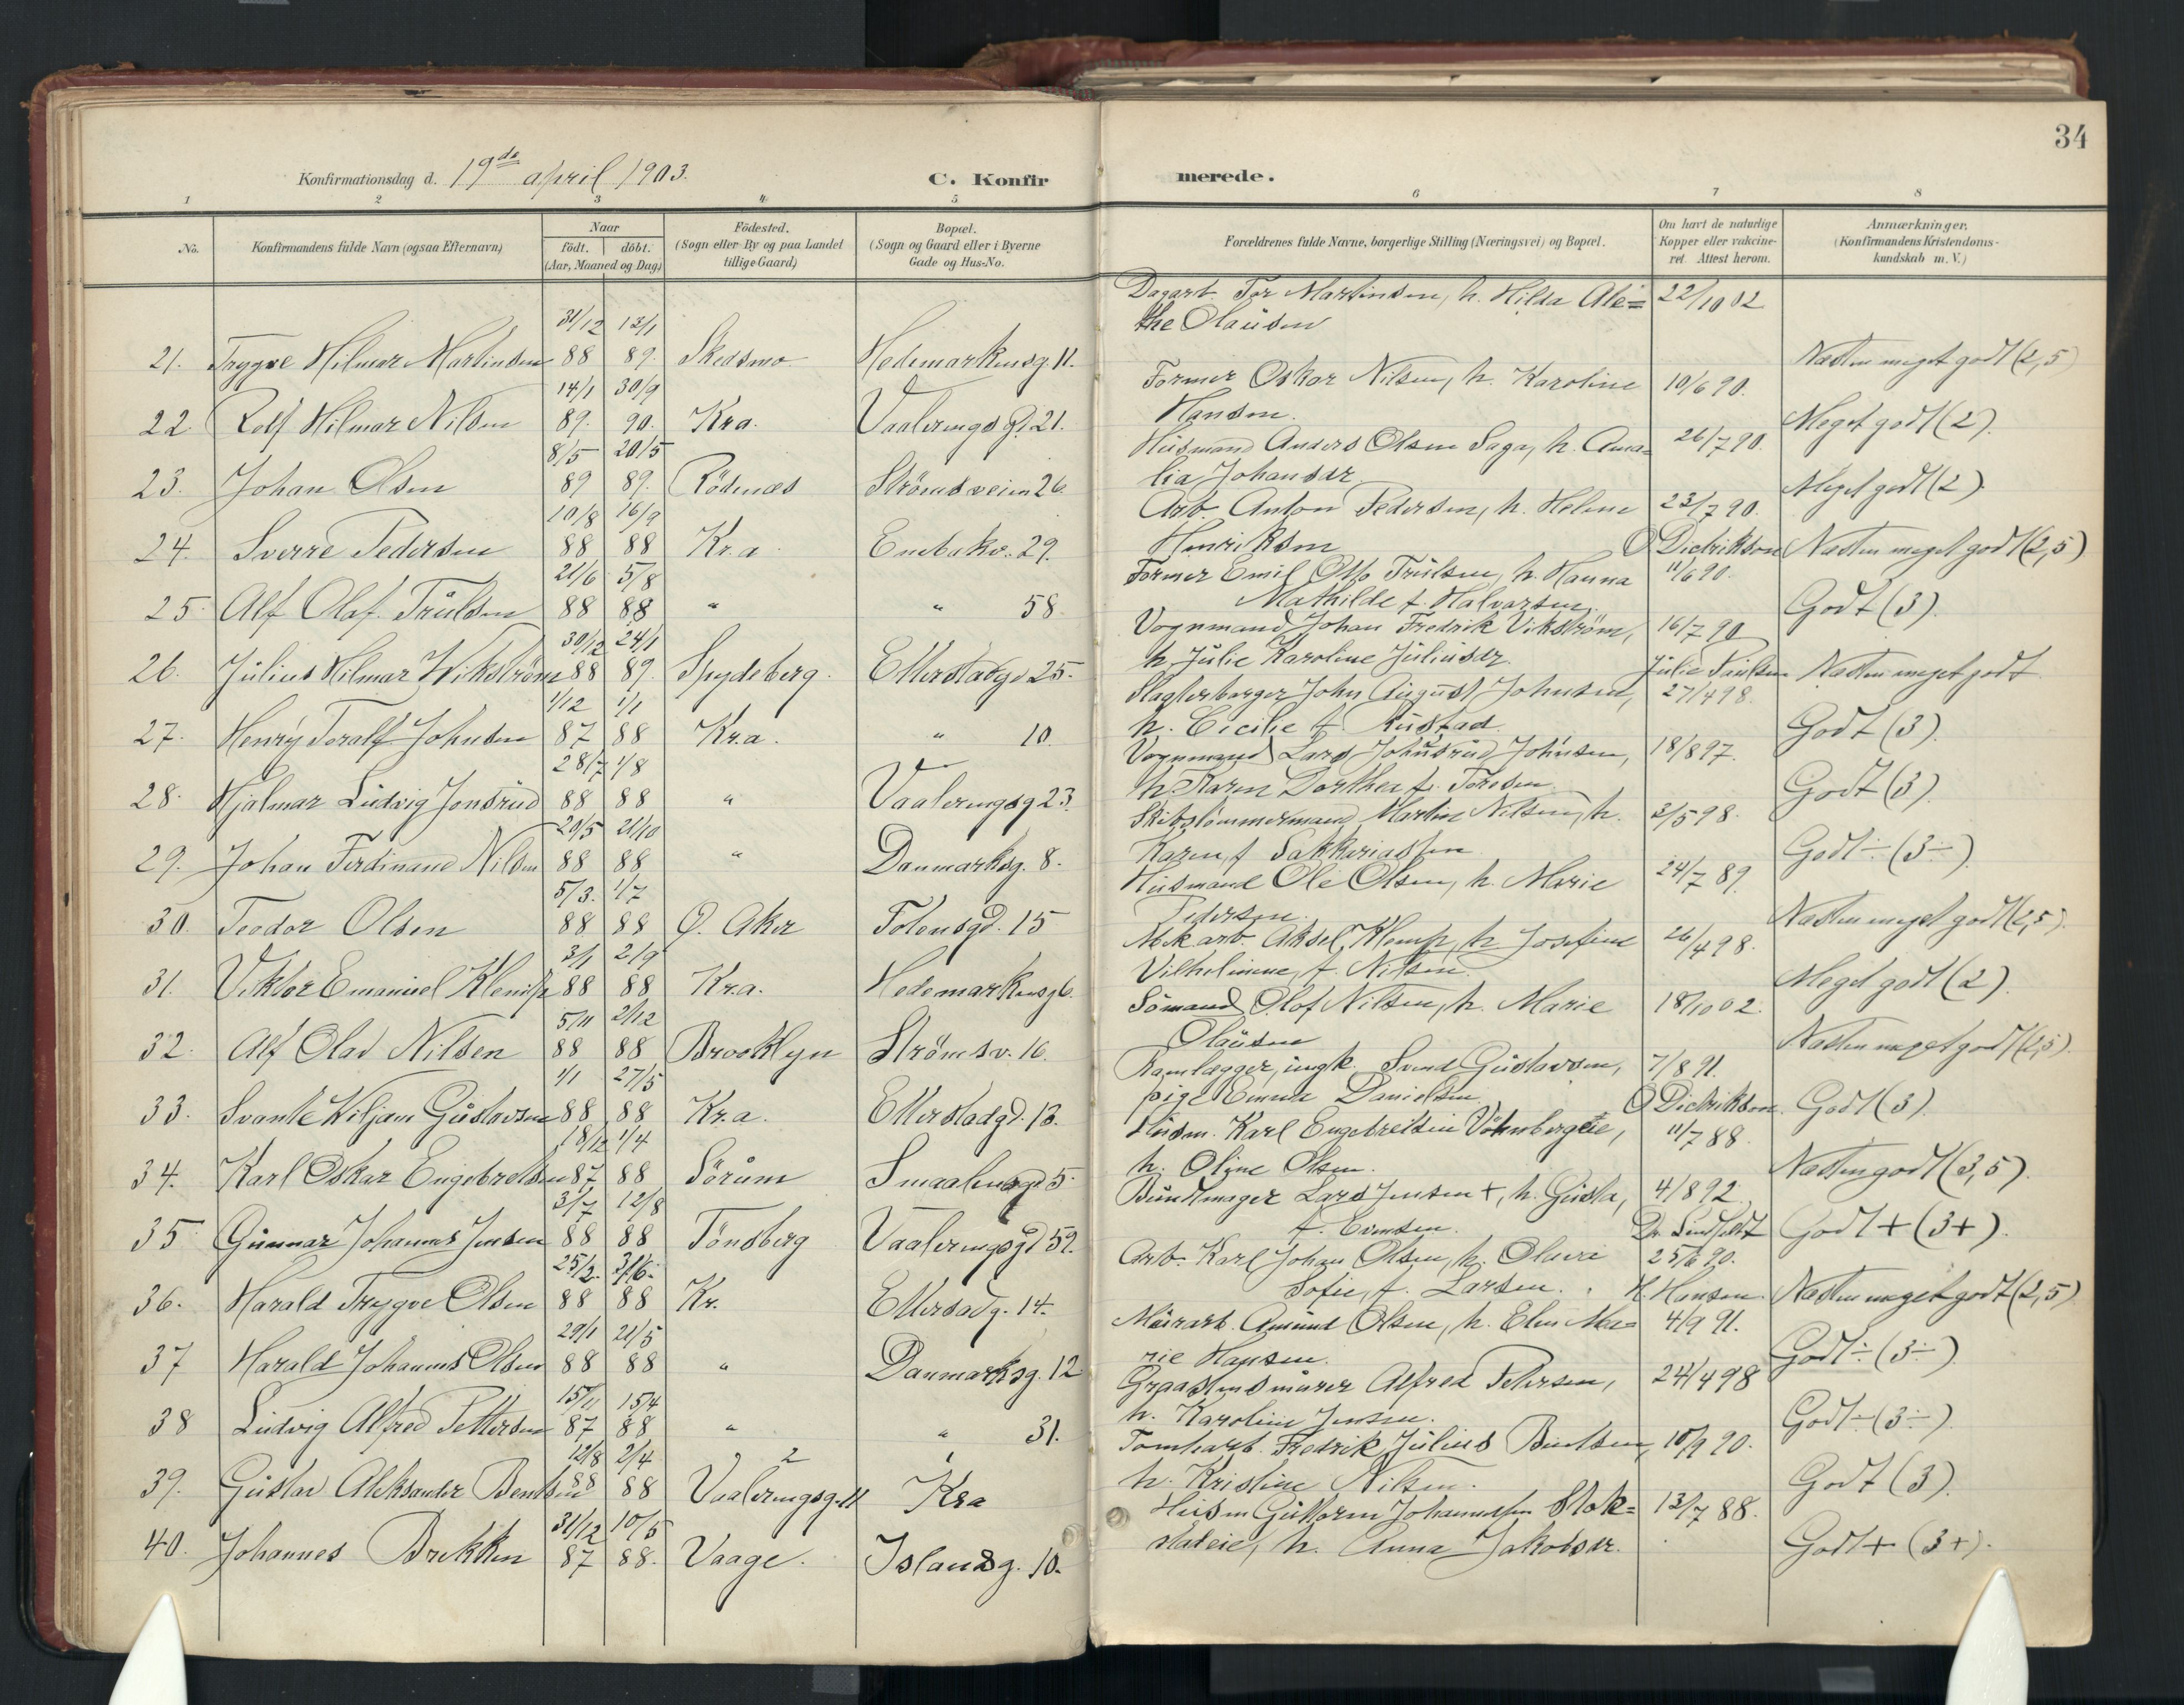 34
Konfirmationsdag d. 19de april 1903.
C. Konfir
merede.
1 2 3 4 5 6 7 8
No.
Konfirmandens fulde Navn (ogsaa Efternavn)
Naar
födt. döbt.
(Aar, Maaned og Dag)
Födested.
(Sogn eller By og paa Landet
tillige Gaard)
Bopæl.
(Sogn og Gaard eller i Byerne
Gade og Hus-No.
Forældrenes fulde Navne, borgerlige Stilling (Næringsvei) og Bopæl.
Om havt de naturlige
Kopper eller vakcine-
ret. Attest herom.
Anmærkninger.
(Konfirmandens Kristendoms-
kundskab m. V.)
31/12 13/1 Dagarb. Tor Martinsen, h. Hilda Ale= 22/10 02
the Olausen
21. Trygve Hilmar Martinsen 88 89. Skedsmo Hedemarkensg. 11. Næsten meget godt (2,5)
14/1 30/9 Former Oskar Nilsen, h. Karoline 10/6 90.
Hansen.
22. Rolf Hilmar Nilsen 89. 90. Kra. Vaalerengsgd. 21. Meget godt (2).
8/5 20/5 Husmand Anders Olsen Saga, h. Ama= 26/7 90.
lia Johansdr.
23. Johan Olsen 89 89. Rödenæs Strömsveien 26. Meget godt (2).
10/8 16/9 Arb. Anton Pedersen, h. Helene 23/7 90.
Henriksen O Didrikson
24. Sverre Pedersen 88 88 Kr.a Enebakv. 29. Næsten meget godt (2,5)
21/6 5/8 Former Emil Otto Trulsen, h. Hanna 11/6 90.
Mathilde f. Halvorsen.
25. Alf Olaf Trulsen 88 88 " " 58 Godt (3).
30/12 24/1 Vognmand Johan Fredrik Vikström, 16/7 90
h. Julie Karoline Juliusdr. Julie Paulsen
26. Julius Hilmar Wikström 88 89. Spydeberg. Etterstadgd 25. Næsten meget godt
1/12 1/1 Slagterborger John August Johnsen, 27/4 98.
h. Cicilie f. Rustad
27. Henry Toralf Johnsen 87 88 Kr.a. " 10. Godt (3).
28/7 1/8 Vognmand Lars Johnsrud Johnsen, 18/8 97.
h. Karen Dorthea f. Toresen
28. Hjalmar Ludvig Jonsrud 88 88 " Vaalerengsg 23. Godt (3).
20/5 21/10 Skibstömmermand Martin Nilsen, h. 3/5 98.
Karen f. Sakkariassen
29. Johan Ferdinand Nilsen 88 88 " Danmarksg. 8. Godt ÷ (3÷)
5/3. 1/7 Husmand Ole Olsen, h. Marie 24/7 89.
Pedersen.
30. Teodor Olsen 88 88 Ö. Aker Totensgd. 15 Næsten meget godt (2,5).
3/1 2/9 Mek arb. Aksel Klemp, h. Josefine 26/4 98.
Vilhelmine, f. Nilsen.
31. Viktor Emanuel Klemp 88 88 Kr.a. Hedemarkensg 6. Meget godt (2).
5/11 2/12 Sömand Olof Nilsen, h. Marie 18/10 02.
Olausen
32. Alf Olav Nilsen 88 88 Brooklyn Strömsv. 16. Næsten meget godt (2,5).
1/1 27/5 Ramlægger, ungk. Svend Gustavsen, 7/8 91.
pige Emma Danielsen. O Didrikson.
33. Svante Wiljam Gustavsen 88 88 Kr.a. Etterstadgd. 13. Godt (3).
18/12 1/4 Husm. Karl Engebretsen, 11/7 88.
h. Oline Olsen.
34. Karl Oskar Engebretsen 87 88 Sörum Smaalensgd 5. Næsten godt (3,5).
3/7 12/8 Buntmager Lars Jensen +, h. Gusta, 4/8 92.
f. Evensen. Dr.
35 Gunnar Johannes Jensen 88 88 Tönsberg Vaalerengsgd 52. Godt + (3+).
25/2. 3/6. Arb. Karl Johan Olsen, h. Olava 25/6 90.
Sofie, f. Larsen. H. Hansen.
36. Harald Trygve Olsen 88 88 Kr. Ettersadg. 14. Næsten meget godt (2,5)
29/1 21/5 Murarb. Amund Olsen, h. Elen Ma= 4/9 91.
rie Hansen.
37 Harald Johannes Olsen 88 88 " Danmarksg. 12 Godt ÷ (3÷)
15/11 15/4 Graastensmurer Alfred Petersen, 24/4 98
h. Karoline Jensen.
38 Ludvig Alfred Pettersen 87 88 " " 31. Godt ÷ (3÷).
12/8 2/4 Tomtearb. Fredrik Julius Bentsen, 10/9 90.
h. Kristine Nilsen.
39. Gustav Aleksander Bentsen 88 88 2 Vaalerengsg. 11 1 Kra Godt (3).
31/12 10/5 Husm Guttorm Johannessen Stok= 13/7 88.
stadeie, h. Anna Jakobsdr.
40. Johannes Brekken 87 88. Vaage. Islandsg. 10. Godt + (3+).